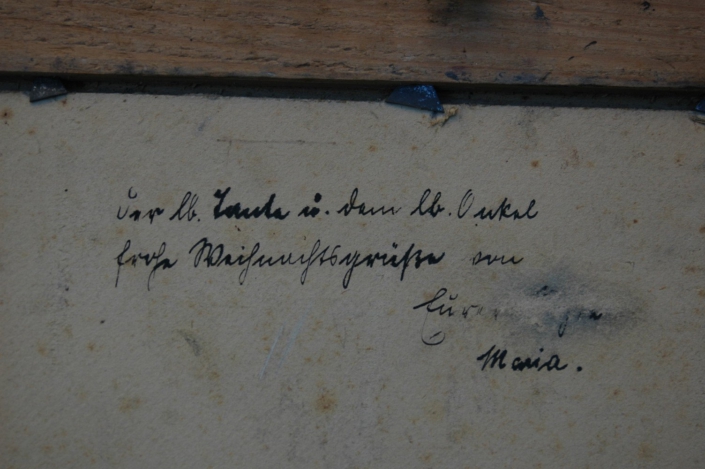 Der lb. Tante u. dem lb. Onkel
frohe Weihnachtsgrüße von
Eurer
Maria.